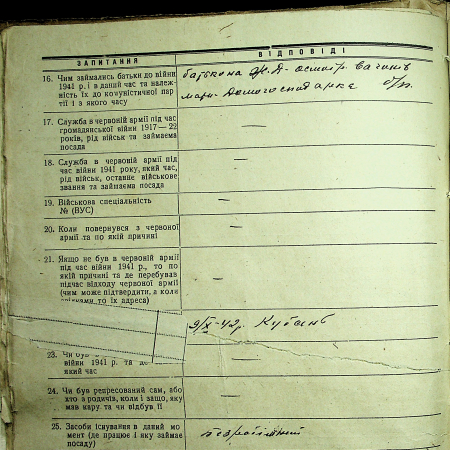 ЗАПИТАННЯ
ВІДПОВІДІ
16. Чим займались батьки до війни
1941 р. і в даний час та належ-
ність їх до комуністичної пар-
тії і з якого часу
батько на Ж.Д. осмотр. вагонів
мати домогосподарка б/п.
17. Служба в червоній армії під час
громадянської війни 1917—22
років, рід військ та займаєма
посада
—
18. Служба в червоній армії під
час війни 1941 року, який час,
рід військ, останнє військове
звання та займаєма посада
—
19. Військова спеціальність
№ (ВУС)
—
20. Коли повернувся з червоної
армії та по якій причині
—
21. Якщо не був в червоній армії
під час війни 1941 р., то по
якій причині та де перебував
підчас відходу червоної армії
(чим може підтвердити, а коли
то їх адреса)
—
9/X-42р. Кубань
23. Чи був
війни 1941 р. та
який час
—
24. Чи був репресований сам, або
хто з родичів, коли і защо, яку
мав кару та чи відбув її
—
25. Засоби існування в даний мо-
мент (де працює і яку займає
посаду)